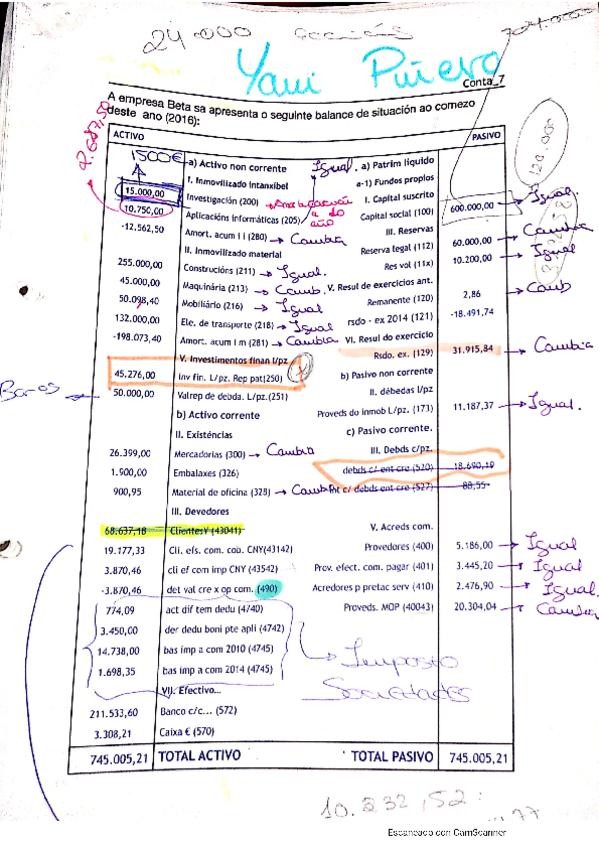 24.000
704.000
Yani Piñero
Conta_7
A empresa Beta sa apresenta o seguinte balance de situación ao comezo
deste ano (2016):
2.687,50
120.000
ACTIVO PASIVO
1500€ a) Activo non corrente Igual. a) Patrim líquido
I. Inmovilizado Intanxibel a-1) Fundos propios
15.000,00 Investigación (200) I. Capital suscrito Igual.
10.750,00 Aplicacións informáticas (205) Capital social (100) 600.000,00
-12.562,50 Amort. acum i i (280) → Cambia III. Reservas
II. Inmovilizado material Reserva legal (112) 60.000,00 → Cambia
255.000,00 Construcións (211) → Igual. Res vol (11x) 10.200,00 → Igual
45.000,00 Maquinária (213) → Camb. V. Resul de exercicios ant.
50.098,40 Mobiliário (216) → Igual Remanente (120) 2,86 → Camb
132.000,00 Ele. de transporte (218) → Igual rsdo - ex 2014 (121) -18.491,74
-198.073,40 Amort. acum i m (281) → Cambia VI. Resul do exercicio
V. Investimentos finan l/pz Rsdo. ex. (129) 31.915,84 → Cambia
45.276,00 Inv fin. L/pz. Rep pat(250) b) Pasivo non corrente
50.000,00 Valrep de debda. L/pz.(251) II. débedas l/pz
b) Activo corrente Proveds do inmob L/pz. (173) 11.187,37 → Igual.
II. Existéncias c) Pasivo corrente.
26.399,00 Mercadorias (300) → Cambia III. Debds c/pz.
1.900,00 Embalaxes (326) debds c/ ent cre (520) 18.690,19
900,95 Material de oficina (328) → Camb Int c/ debds ent cre (527) 88,55
III. Devedores
68.637,18 ClientesY (43041) V. Acreds com.
19.177,33 Cli. efs. com. cob. CNY(43142) Provedores (400) 5.186,00 → Igual
3.870,46 cli ef com imp CNY (43542) Prov. efect. com. pagar (401) 3.445,20 → Igual
-3.870,46 det val cre x op com. (490) Acredores p pretac serv (410) 2.476,90 → Igual.
774,09 act dif tem dedu (4740) Proveds. MOP (40043) 20.304,04 → Cambia
3.450,00 der dedu boni pte apli (4742)
14.738,00 bas imp a com 2010 (4745) Imposto
1.698,35 bas imp a com 2014 (4745) Sociedades
VII. Efectivo...
211.533,60 Banco c/c... (572)
3.308,21 Caixa € (570)
745.005,21 TOTAL ACTIVO TOTAL PASIVO 745.005,21
10.332,52
Escaneado con CamScanner